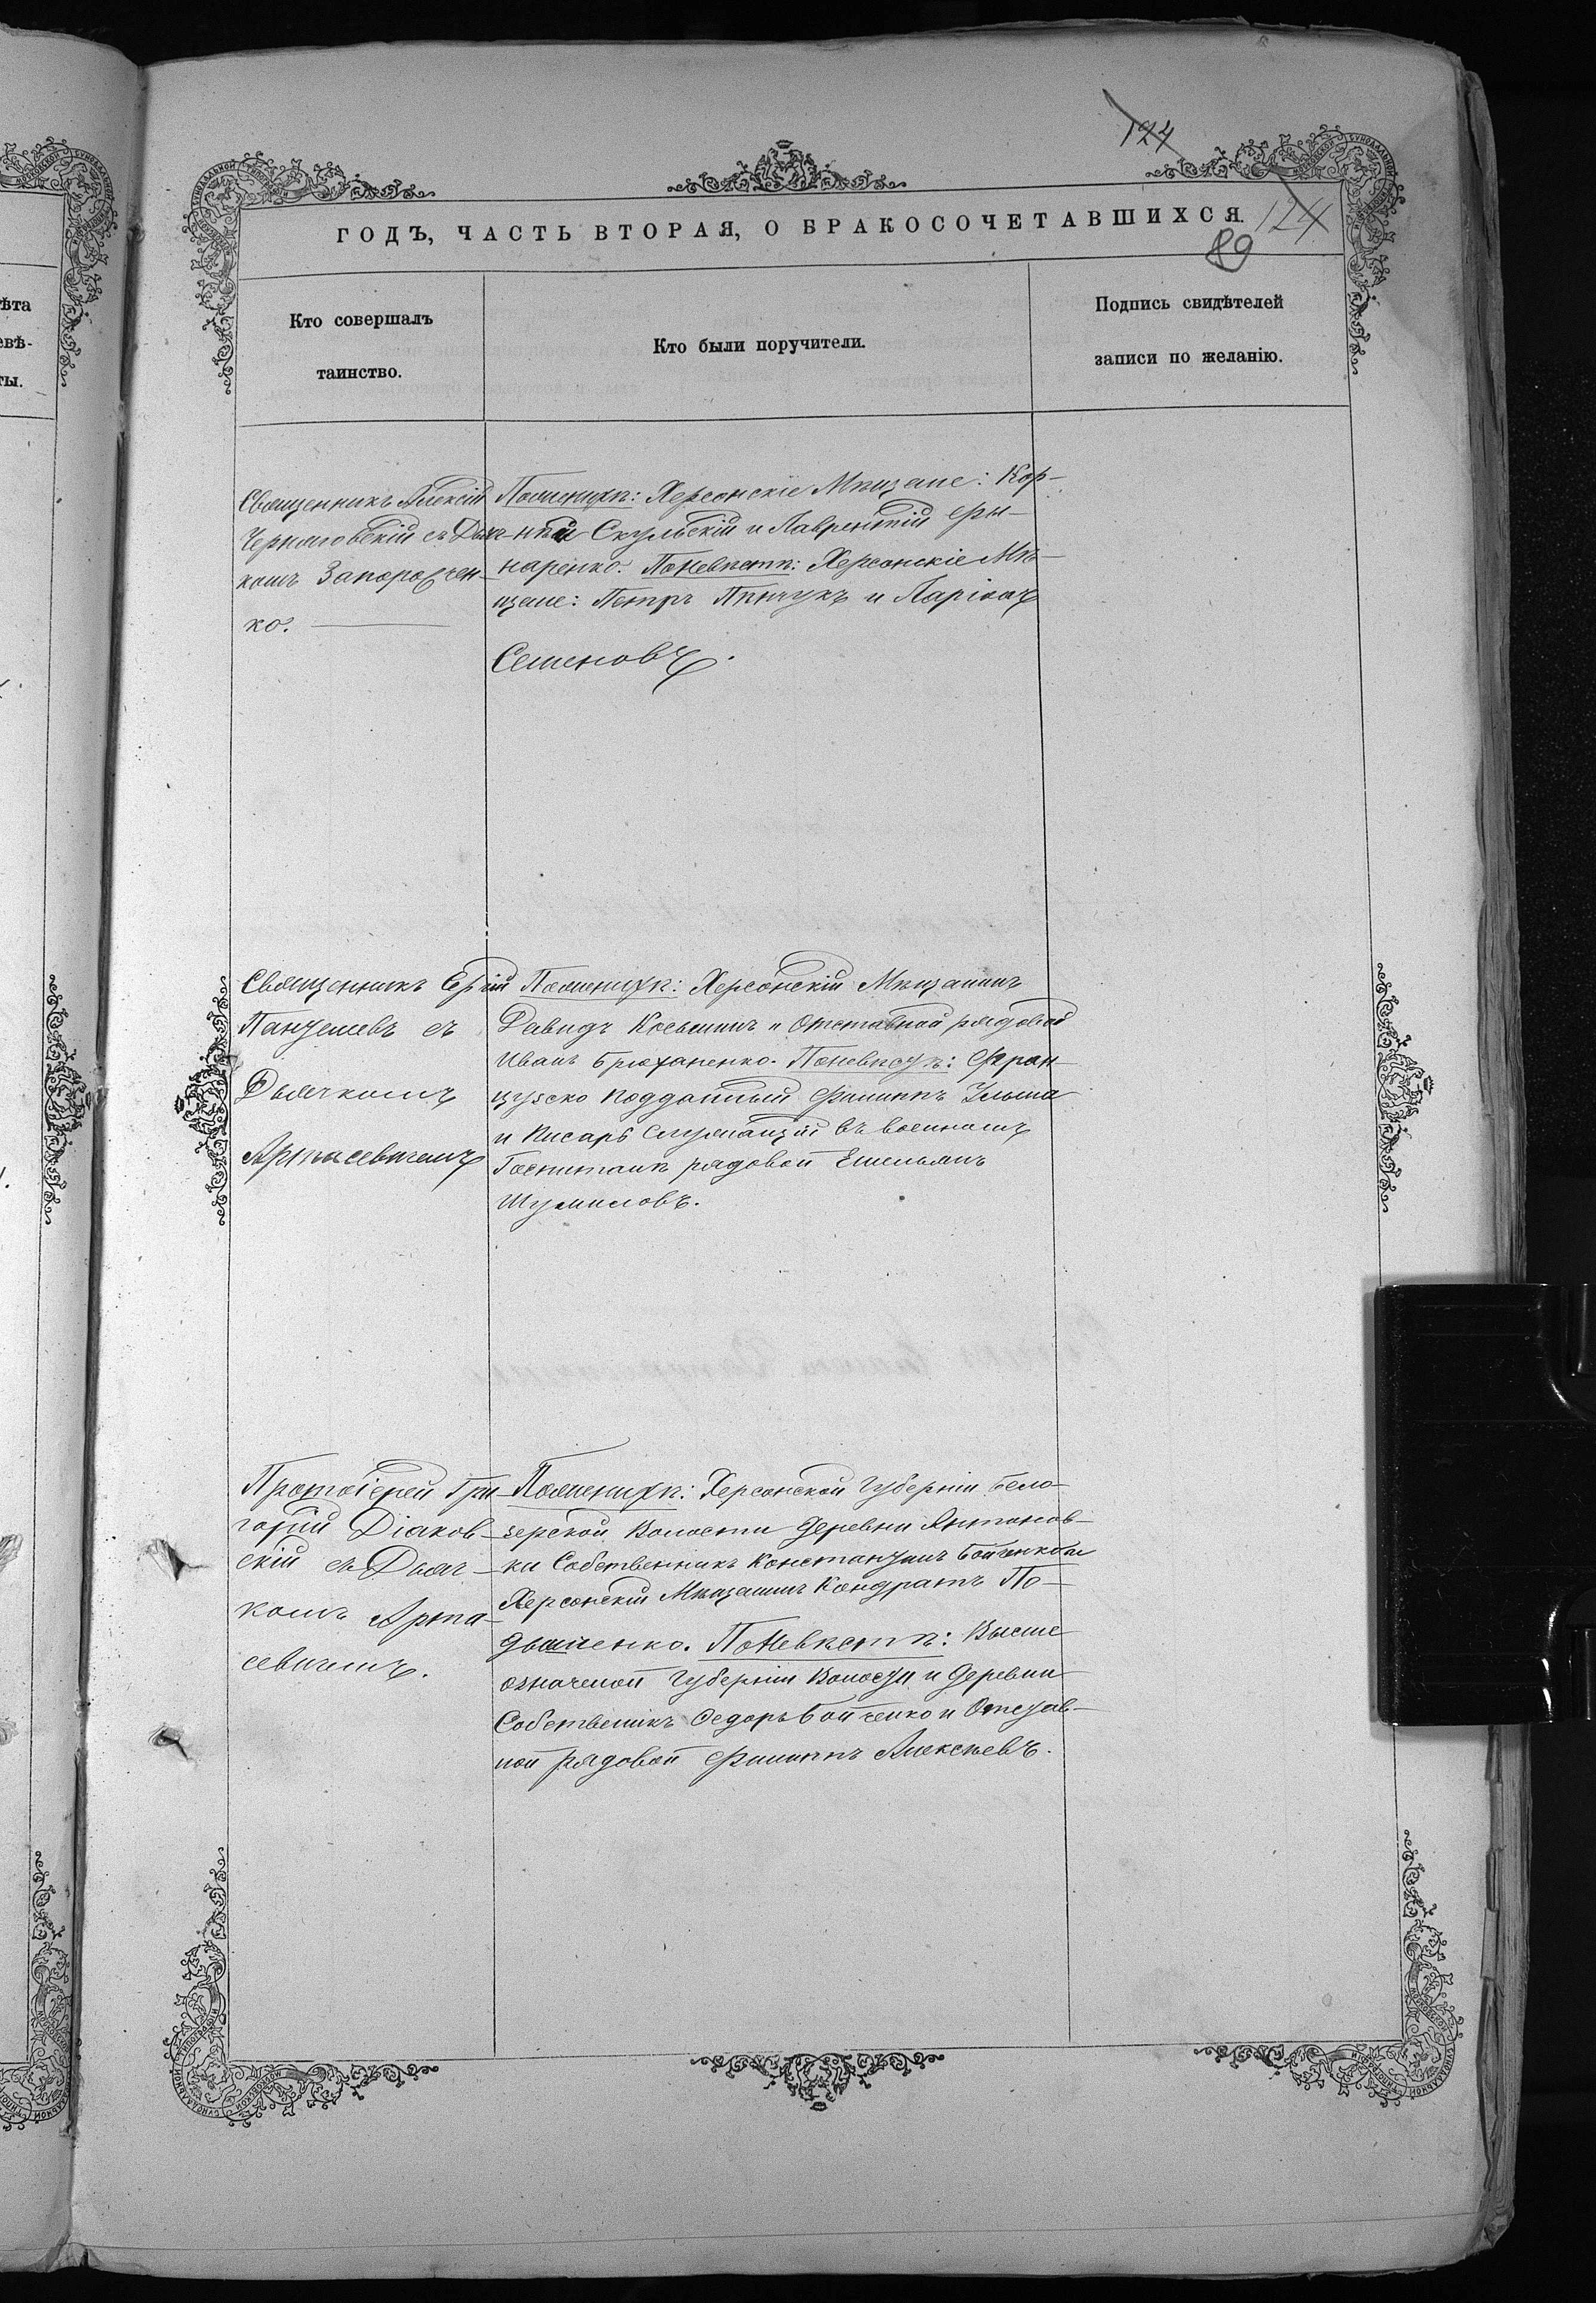 124
ГОДЪ, ЧАСТЬ ВТОРАЯ, О БРАКОСОЧЕТАВШИХСЯ.
124
89
Кто совершалъ
таинство.
Кто были поручители.
Подпись свидѣтелей
записи по желанію.
ѣта
евѣ-
ты.
Священникъ Алексій
Черняговскій съ Дьяч-
комъ Запорожчен-
ко.
По женихѣ: Херсонскіе Мѣщане: Кор-
нѣй Скульскій и Лаврентій
наренко. По невѣстѣ: Херсонскіе Мѣ-
щане: Петръ Пинчукъ и Ларіонъ
Семеновъ.
Священникъ Сергій
Панчешевъ съ
Дьячкомъ
Артасевичемъ
По женихѣ: Херсонскій Мѣщанинъ
Давидъ Косьминъ и Отставной рядовой
Иванъ Брюханенко. По невѣстѣ: Фран-
цузско подданный Филиппъ
и Писарь служащій въ военномъ
Госпиталѣ рядовой Емельянъ
Шумиловъ.
Протоіерей Гри-
горій Діаков-
скій съ Дьяч-
комъ Арта-
севичемъ.
По женихѣ: Херсонской Губерніи Бело-
зерской Волости Деревни Антонов-
ки Собственникъ Константинъ Бойченко и
Херсонскій Мѣщанинъ Кондратъ По-
дыменко. По невѣстѣ: Выше
означеной Губерніи Волости и Деревни
Собственикъ Ѳедоръ Бойченко и Отстав-
ной рядовой Филиппъ Алексѣевъ.